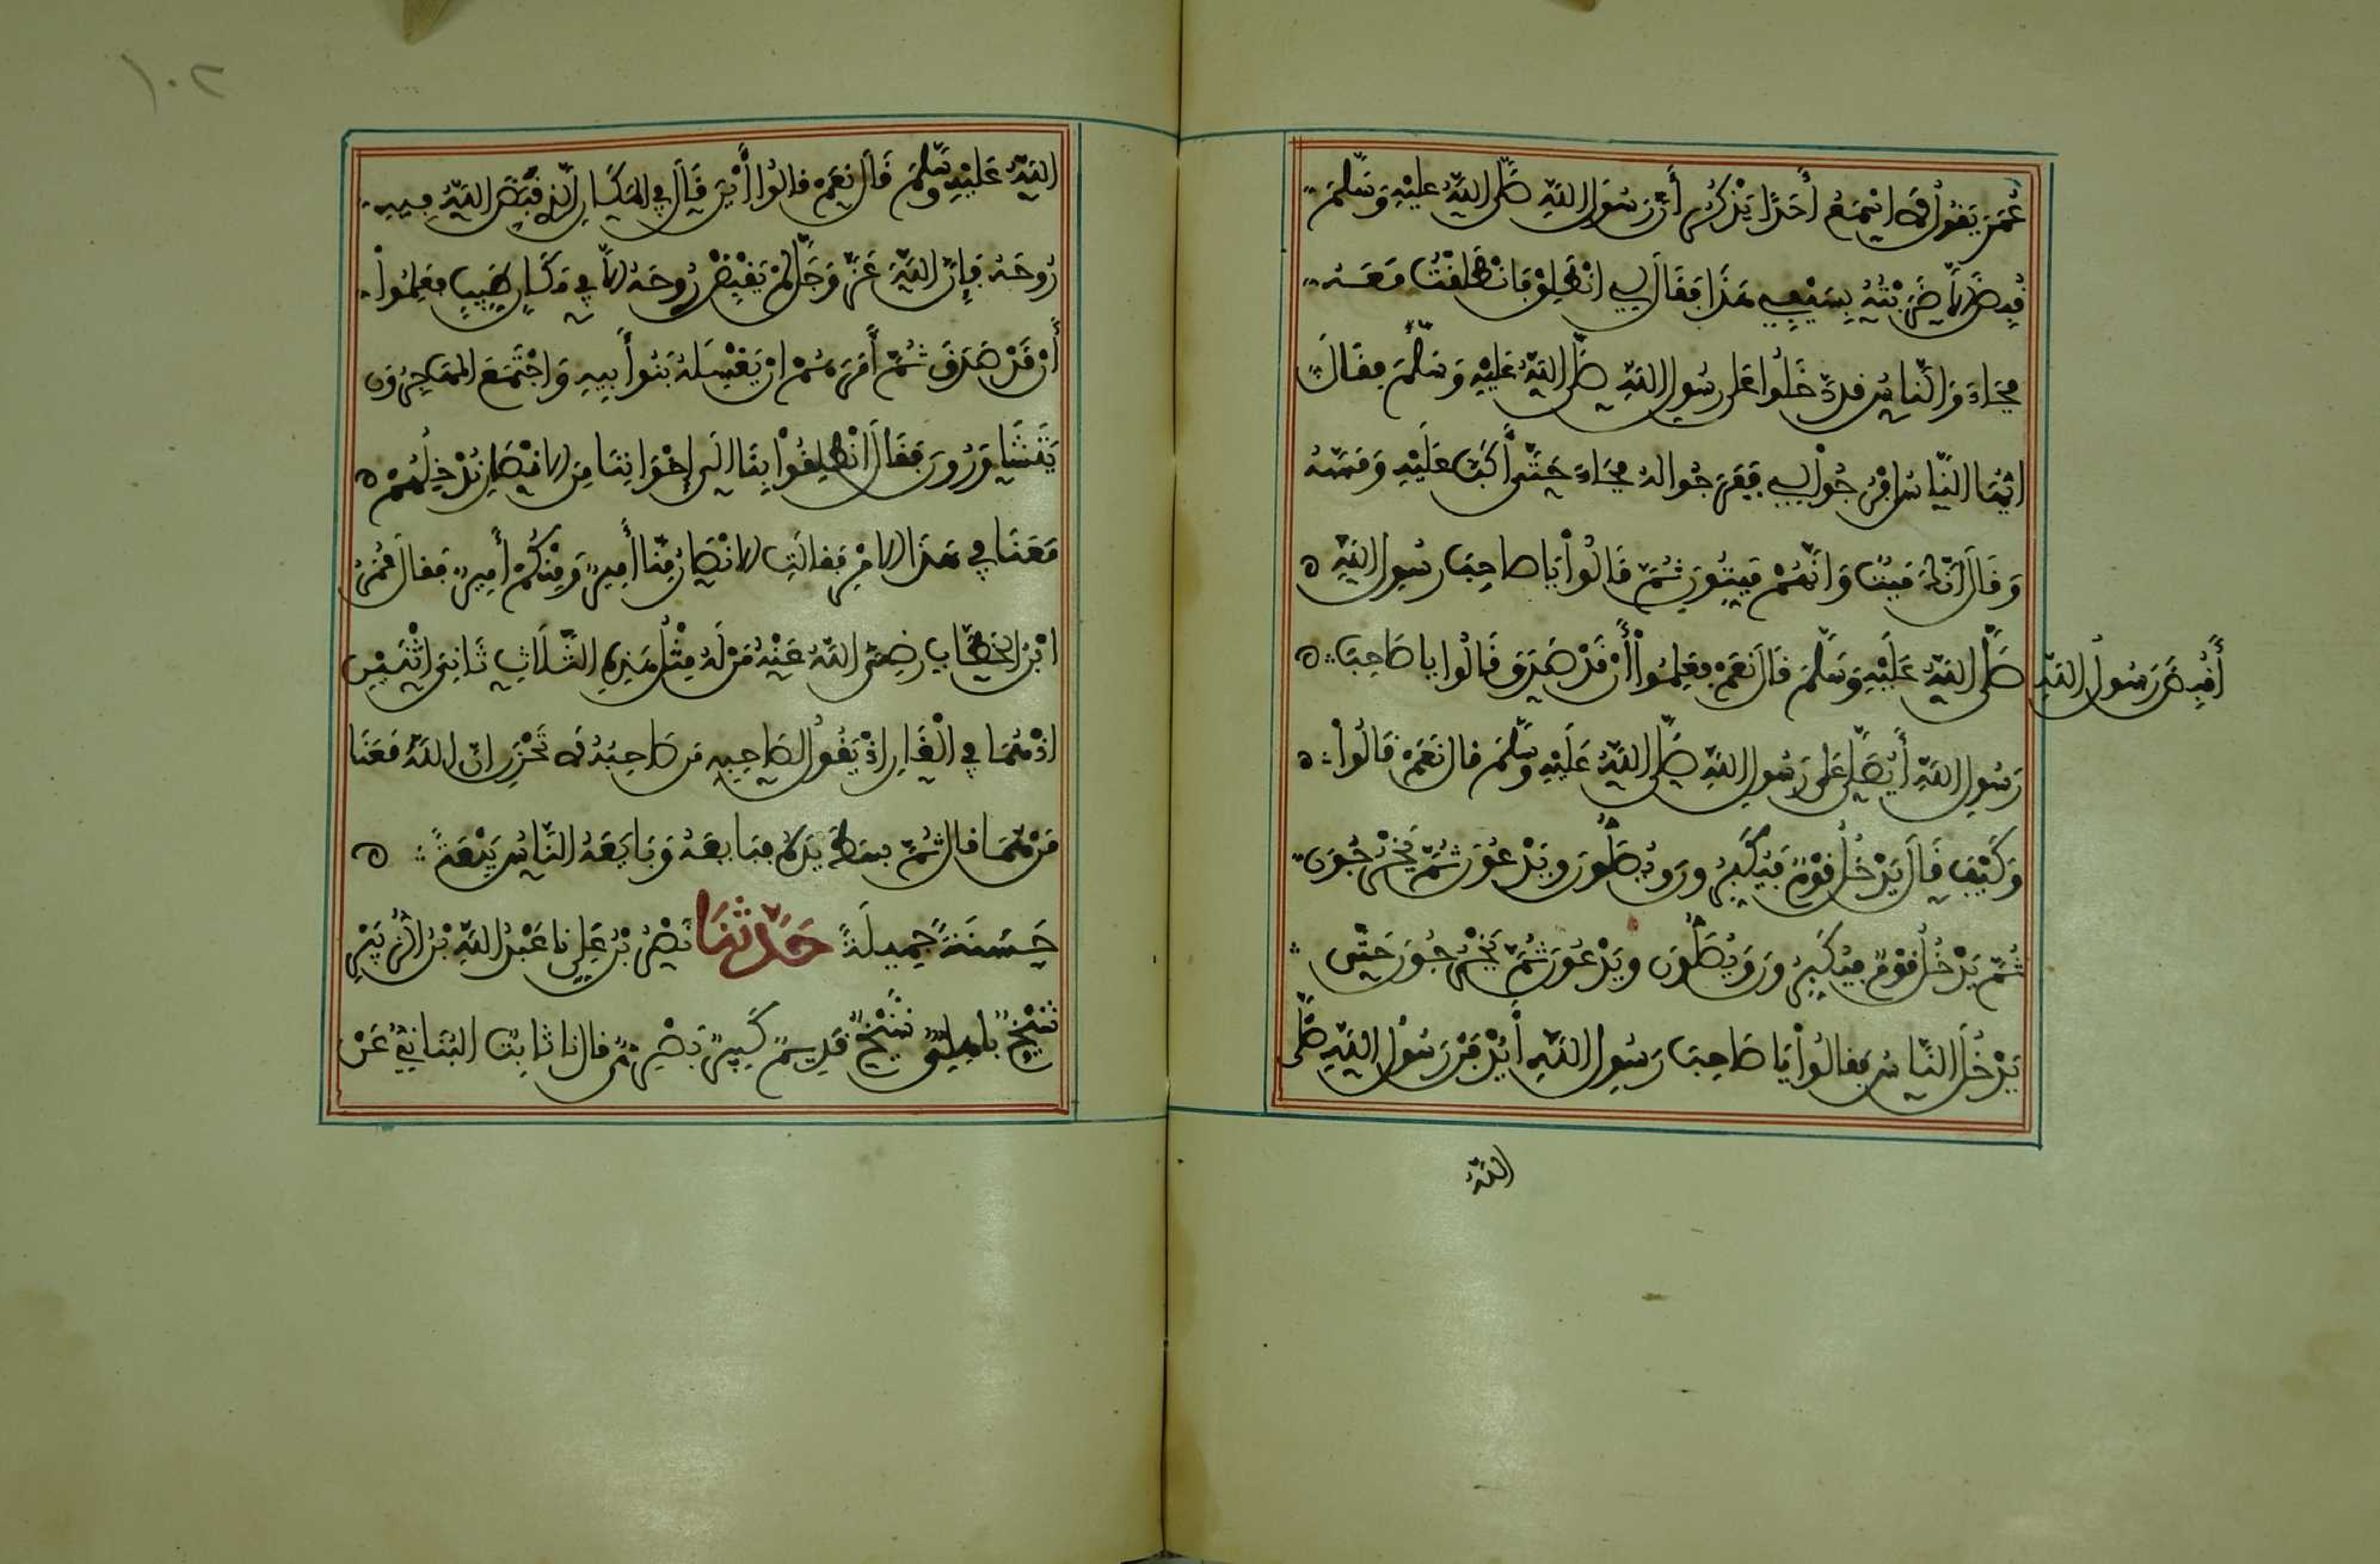 عُمَرَ يَقُولُ لَا اسْمَعُ أَحَدًا يَذْكُرُ أَنَّ رَسُولَ اللَّهِ صَلَّى اللَّهُ عَلَيْهِ وَسَلَّمَ
قُبِضَ إِلَّا ضَرَبْتُهُ بِسَيْفِي هَذَا فَقَالَ لِي انْطَلِقْ فَانْطَلَقْتُ مَعَهُ
فَجَاءَ وَالنَّاسُ قَدْ دَخَلُوا عَلَى رَسُولِ اللَّهِ صَلَّى اللَّهُ عَلَيْهِ وَسَلَّمَ فَقَالَ
ايُّهَا النَّاسُ افْرِجُوا لِي فَفَرَجُوا لَهُ فَجَاءَ حَتَّى أَكَبَّ عَلَيْهِ وَمَسَّهُ
وَقَالَ انَّكَ مَيِّتٌ وَانَّهُمْ مَيِّتُونَ ثُمَّ قَالُوا يَا صَاحِبَ رَسُولِ اللَّهِ
أَقُبِضَ رَسُولُ اللَّهِ صَلَّى اللَّهُ عَلَيْهِ وَسَلَّمَ قَالَ نَعَمْ فَعَلِمُوا أَنْ قَدْ صَدَقَ قَالُوا يَا صَاحِبَ
رَسُولِ اللَّهِ أَيُصَلَّى عَلَى رَسُولِ اللَّهِ صَلَّى اللَّهُ عَلَيْهِ وَسَلَّمَ قَالَ نَعَمْ قَالُوا
وَكَيْفَ قَالَ يَدْخُلُ قَوْمٌ فَيُكَبِّرُونَ وَيُصَلُّونَ وَيَدْعُونَ ثُمَّ يَخْرُجُونَ
ثُمَّ يَدْخُلُ قَوْمٌ فَيُكَبِّرُونَ وَيُصَلُّونَ وَيَدْعُونَ ثُمَّ يَخْرُجُونَ حَتَّى
يَدْخُلَ النَّاسُ فَقَالُوا يَا صَاحِبَ رَسُولِ اللَّهِ أَيُدْفَنُ رَسُولُ اللَّهِ صَلَّى
اللَّهُ
١٠٢
اللَّهُ عَلَيْهِ وَسَلَّمَ قَالَ نَعَمْ قَالُوا أَيْنَ قَالَ فِي الْمَكَانِ الَّذِي قَبَضَ اللَّهُ فِيهِ
رُوحَهُ فَإِنَّ اللَّهَ عَزَّ وَجَلَّ لَمْ يَقْبِضْ رُوحَهُ إِلَّا فِي مَكَانٍ طَيِّبٍ فَعَلِمُوا
أَنْ قَدْ صَدَقَ ثُمَّ أَمَرَهُمْ انْ يَغْسِلَهُ بَنُوا أَبِيهِ وَاجْتَمَعَ الْمُهَاجِرُونَ
يَتَشَاوَرُونَ فَقَالَ انْطَلِقُوا بِنَا الَى إِخْوَانِنَا مِنَ الانْصَارِ نُدْخِلُهُمْ
مَعَنَا فِي هَذَا الامْرِ فَقَالَتِ الانْصَارُ مِنَّا أَمِيرٌ وَمِنْكُمْ أَمِيرٌ فَقَالَ عُمَرُ
ابْنُ الْخَطَّابِ رَضِيَ اللَّهُ عَنْهُ مَنْ لَهُ مِثْلُ هَذِهِ الثَّلَاثِ ثَانِيَ اثْنَيْنِ
اذْ هُمَا فِي الْغَارِ اذْ يَقُولُ لِصَاحِبِهِ مَنْ صَاحِبُهُ لَا تَحْزَنْ انَّ اللَّهَ مَعَنَا
مَنْ هُمَا قَالَ ثُمَّ بَسَطَ يَدَهُ فَبَايَعَهُ وَبَايَعَهُ النَّاسُ بَيْعَةً
حَسَنَةً جَمِيلَةً حَدَّثَنَا نَصْرُ بْنُ عَلِيٍّ نا عَبْدُ اللَّهِ بْنُ الزُّبَيْرِ
شَيْخٌ بَاهِلِيٌّ شَيْخٌ قَدِيمٌ كَبِيرٌ بَصْرِيٌّ قَالَ نا ثَابِتٌ الْبُنَانِيُّ عَنْ